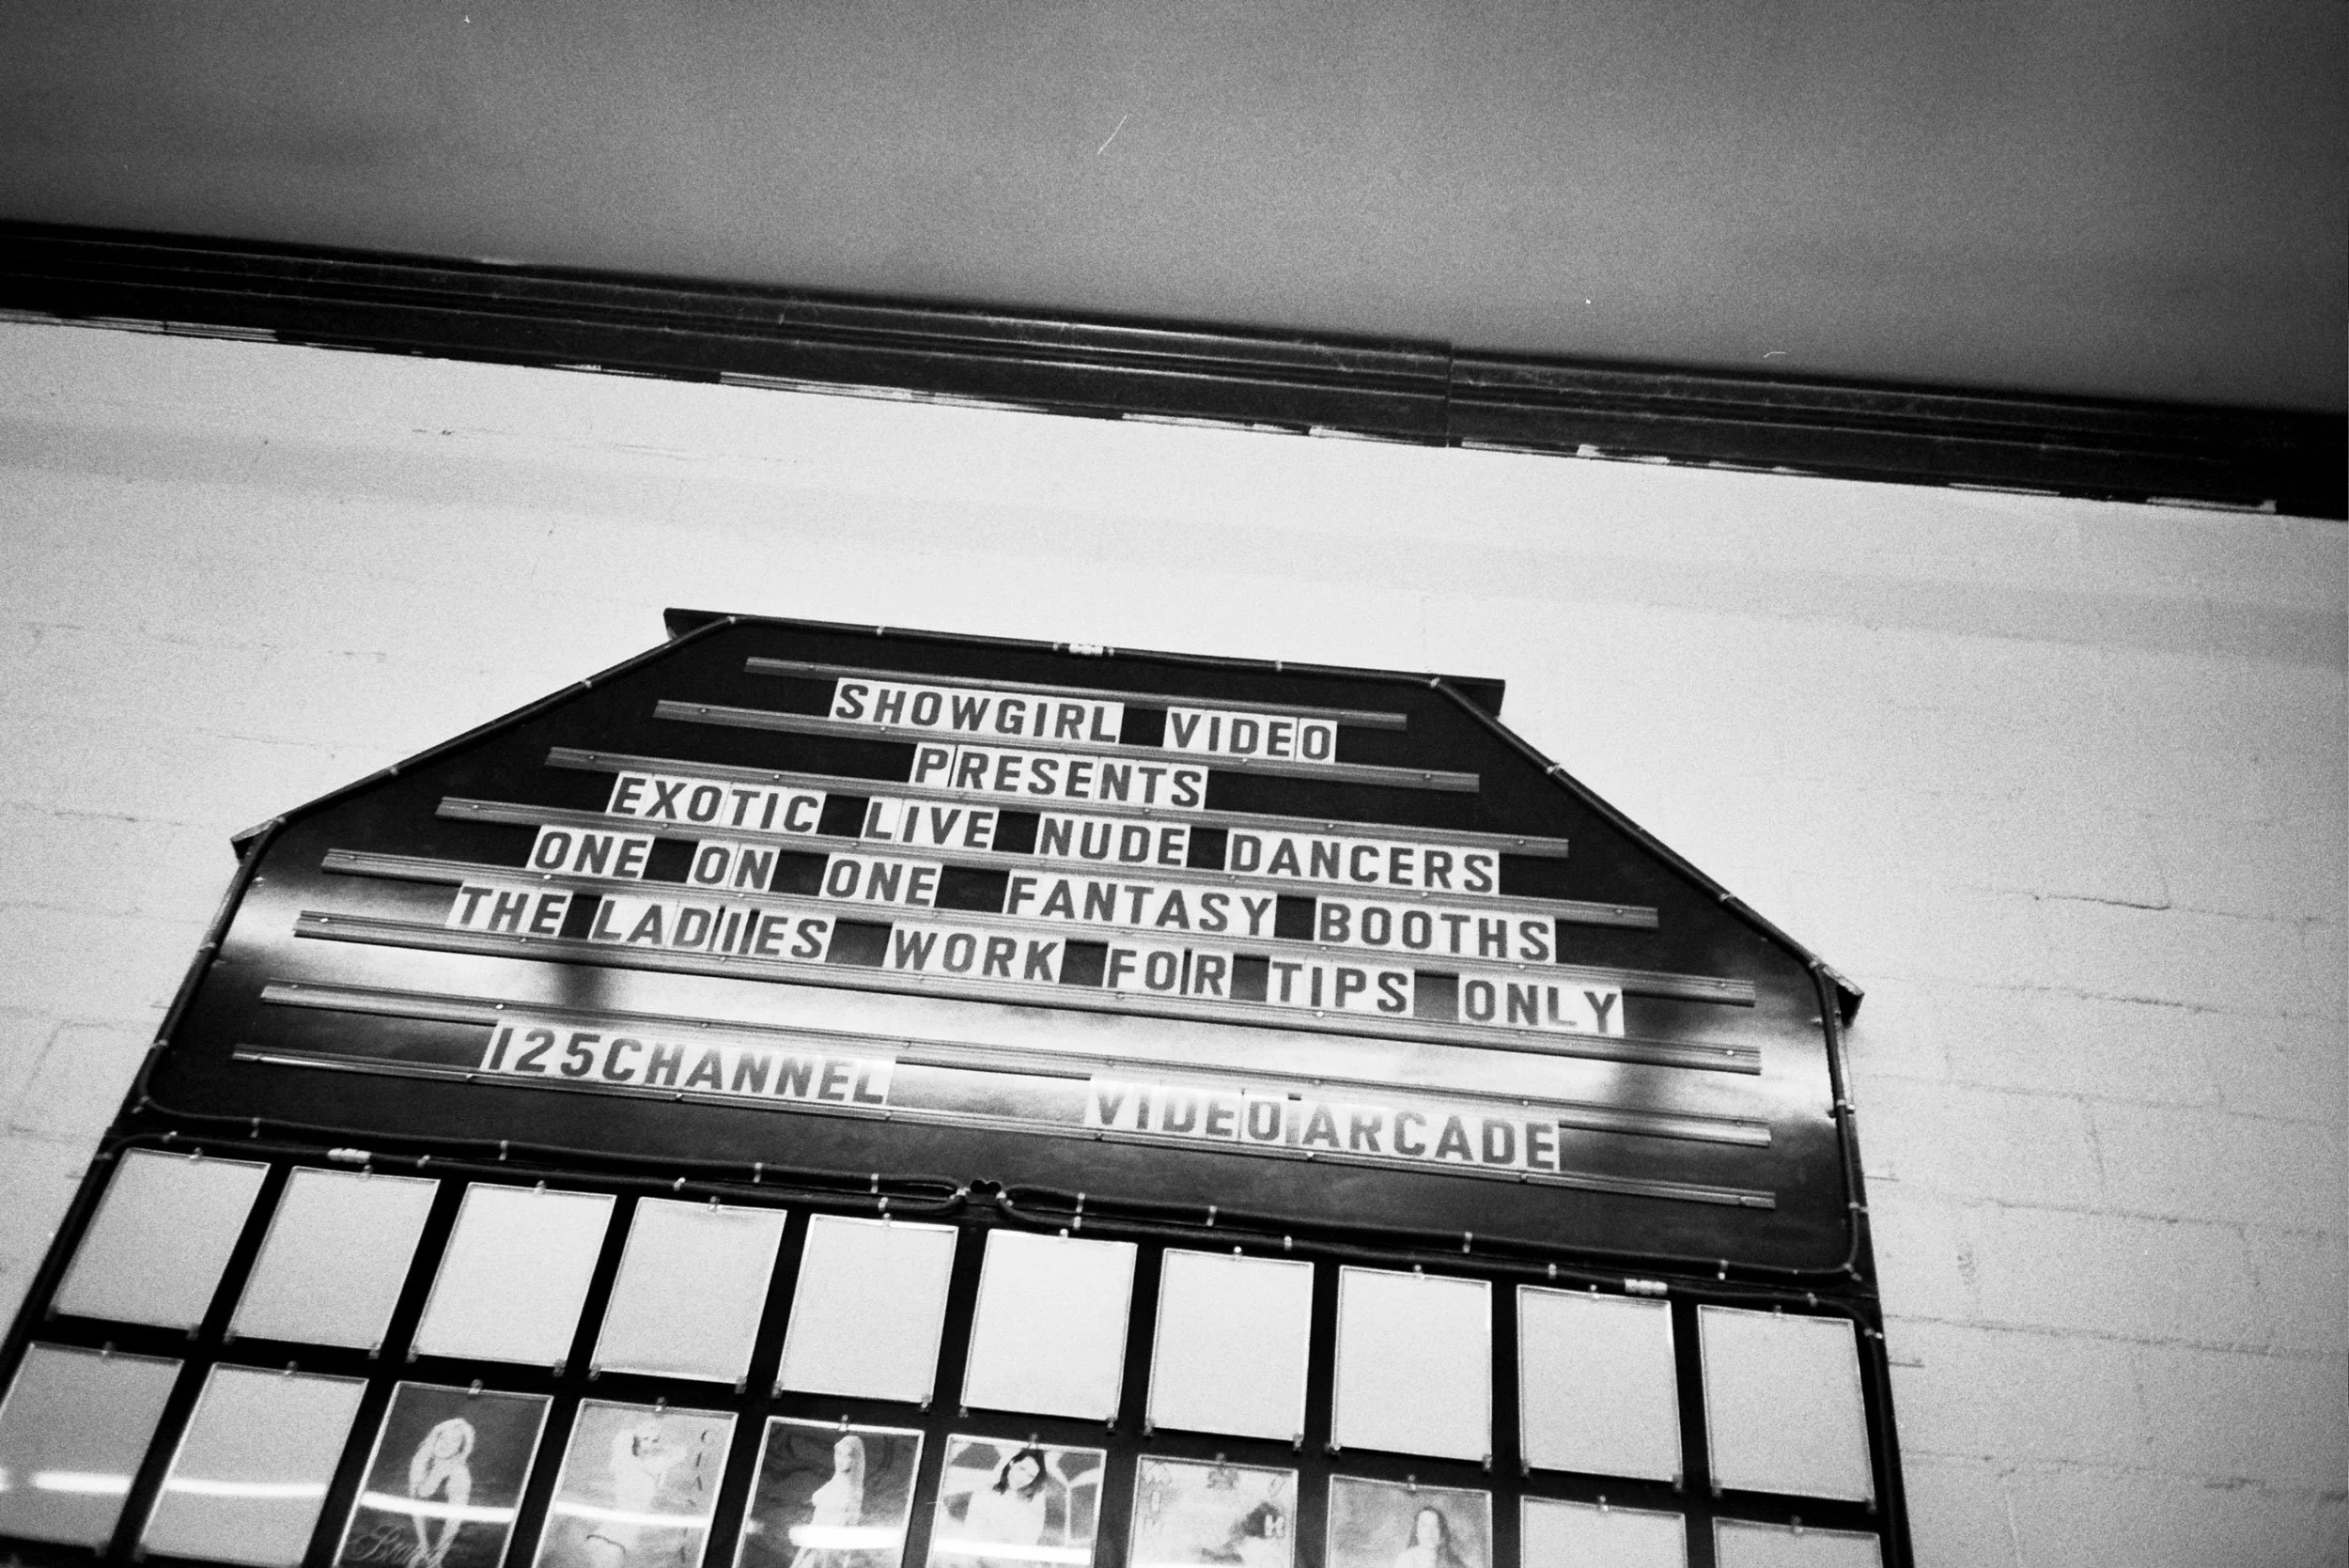 SHOWGIRL VIDEO
PRESENTS
EXOTIC LIVE NUDE DANCERS
ONE ON ONE FANTASY BOOTHS
THE LADIES WORK FOR TIPS ONLY
125CHANNEL VIDEO ARCADE